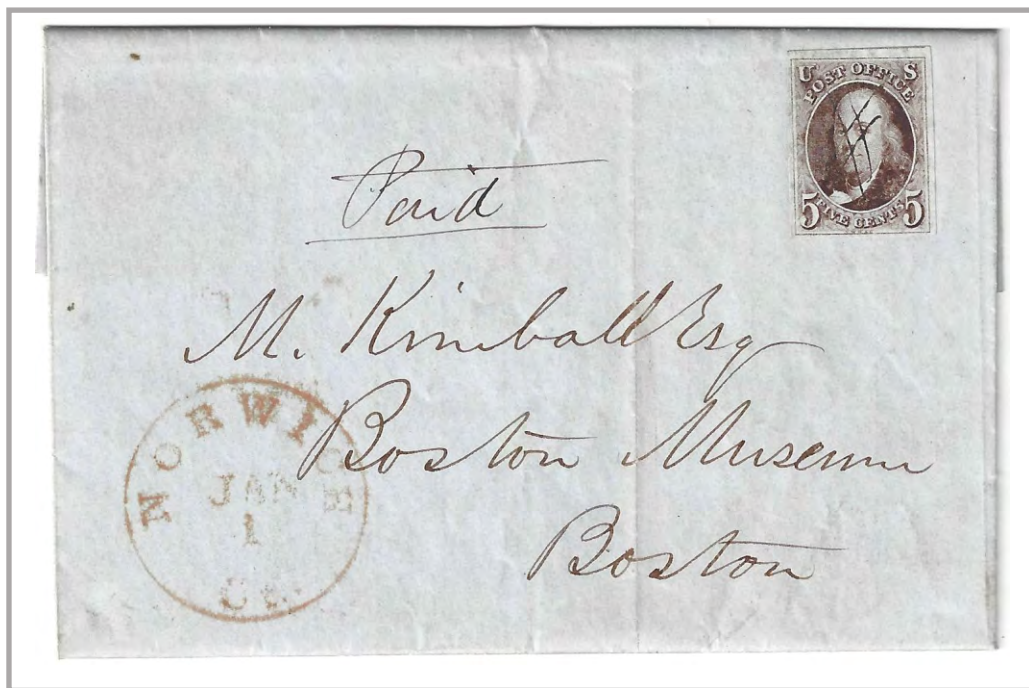 U S
POST OFFICE
5 FIVE CENTS 5
Paid
M. Kimball Esq
Boston Museum
Boston
NORWICH
JAN
1
CT.